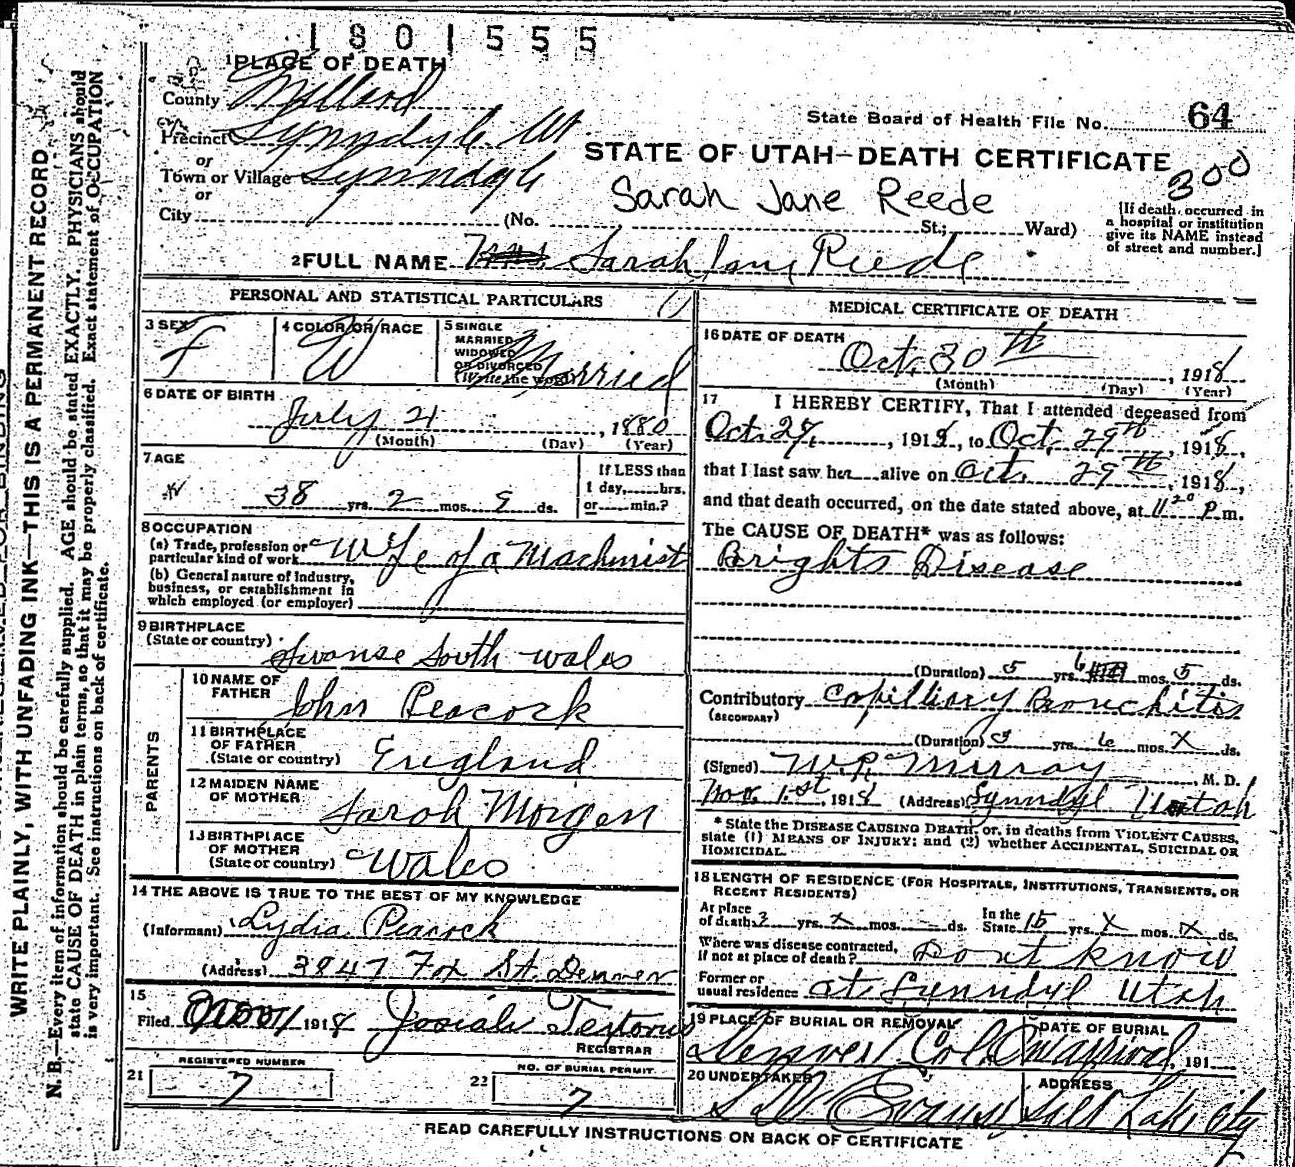 1801555
1PLACE OF DEATH
County Millard
Precinct Lynndyle Ut.
or
Town or Village Lynndyle
or
City (No. St.; Ward)
State Board of Health File No. 64
STATE OF UTAH—DEATH CERTIFICATE
300
Sarah Jane Reede
[If death occurred in
a hospital or institution
give its NAME instead
of street and number.]
2FULL NAME Mrs. Sarah Jane Reede
PERSONAL AND STATISTICAL PARTICULARS
3 SEX F
4 COLOR OR RACE W
5 SINGLE
MARRIED
WIDOWED
OR DIVORCED
(Write the word) Married
6 DATE OF BIRTH
July 21, 1880
(Month) (Day) (Year)
7 AGE
38 yrs. 2 mos. 9 ds.
If LESS than
1 day, hrs.
or min.?
8 OCCUPATION
(a) Trade, profession or
particular kind of work Wife of a Machinist
(b) General nature of industry,
business, or establishment in
which employed (or employer)
9 BIRTHPLACE
(State or country)
Swanse South Wales
PARENTS
10 NAME OF
FATHER John Peacock
11 BIRTHPLACE
OF FATHER
(State or country) England
12 MAIDEN NAME
OF MOTHER Sarah Morgen
13 BIRTHPLACE
OF MOTHER
(State or country) Wales
14 THE ABOVE IS TRUE TO THE BEST OF MY KNOWLEDGE
(Informant) Lydia Peacock
(Address) 3847 Fox St. Denver
15
Filed Nov 1 1918 Josiah
REGISTRAR
21 REGISTERED NUMBER
7
22 NO. OF BURIAL PERMIT.
7
MEDICAL CERTIFICATE OF DEATH
16 DATE OF DEATH
Oct. 30th, 1918
(Month) (Day) (Year)
17 I HEREBY CERTIFY, That I attended deceased from
Oct. 27, 1918, to Oct. 29th, 1918,
that I last saw her alive on Oct. 29th, 1918,
and that death occurred, on the date stated above, at 11 20 P.m.
The CAUSE OF DEATH* was as follows:
Brights Disease
(Duration) 5 yrs. 6 mos. 5 ds.
Contributory Capilliary Bronchitis
(SECONDARY)
(Duration) 3 yrs. 6 mos. X ds.
(Signed) W.P. Murray M. D.
Nov. 1.st, 1918 (Address) Lynndyl Utah
* State the DISEASE CAUSING DEATH, or, in deaths from VIOLENT CAUSES,
state (1) MEANS OF INJURY; and (2) whether ACCIDENTAL, SUICIDAL OR
HOMICIDAL.
18 LENGTH OF RESIDENCE (FOR HOSPITALS, INSTITUTIONS, TRANSIENTS, OR
RECENT RESIDENTS)
At place
of death 3 yrs. X mos. – ds. In the
State 15 yrs. X mos. X ds.
Where was disease contracted,
if not at place of death? Dont know
Former or
usual residence at Lynndyl Utah
19 PLACE OF BURIAL OR REMOVAL
Denver Col.
DATE OF BURIAL
On arrival, 191
20 UNDERTAKER
Evans
ADDRESS
Salt Lake City
READ CAREFULLY INSTRUCTIONS ON BACK OF CERTIFICATE
WRITE PLAINLY, WITH UNFADING INK—THIS IS A PERMANENT RECORD
N. B.—Every item of information should be carefully supplied. AGE should be stated EXACTLY. PHYSICIANS should
state CAUSE OF DEATH in plain terms, so that it may be properly classified. Exact statement of OCCUPATION
is very important. See instructions on back of certificate.